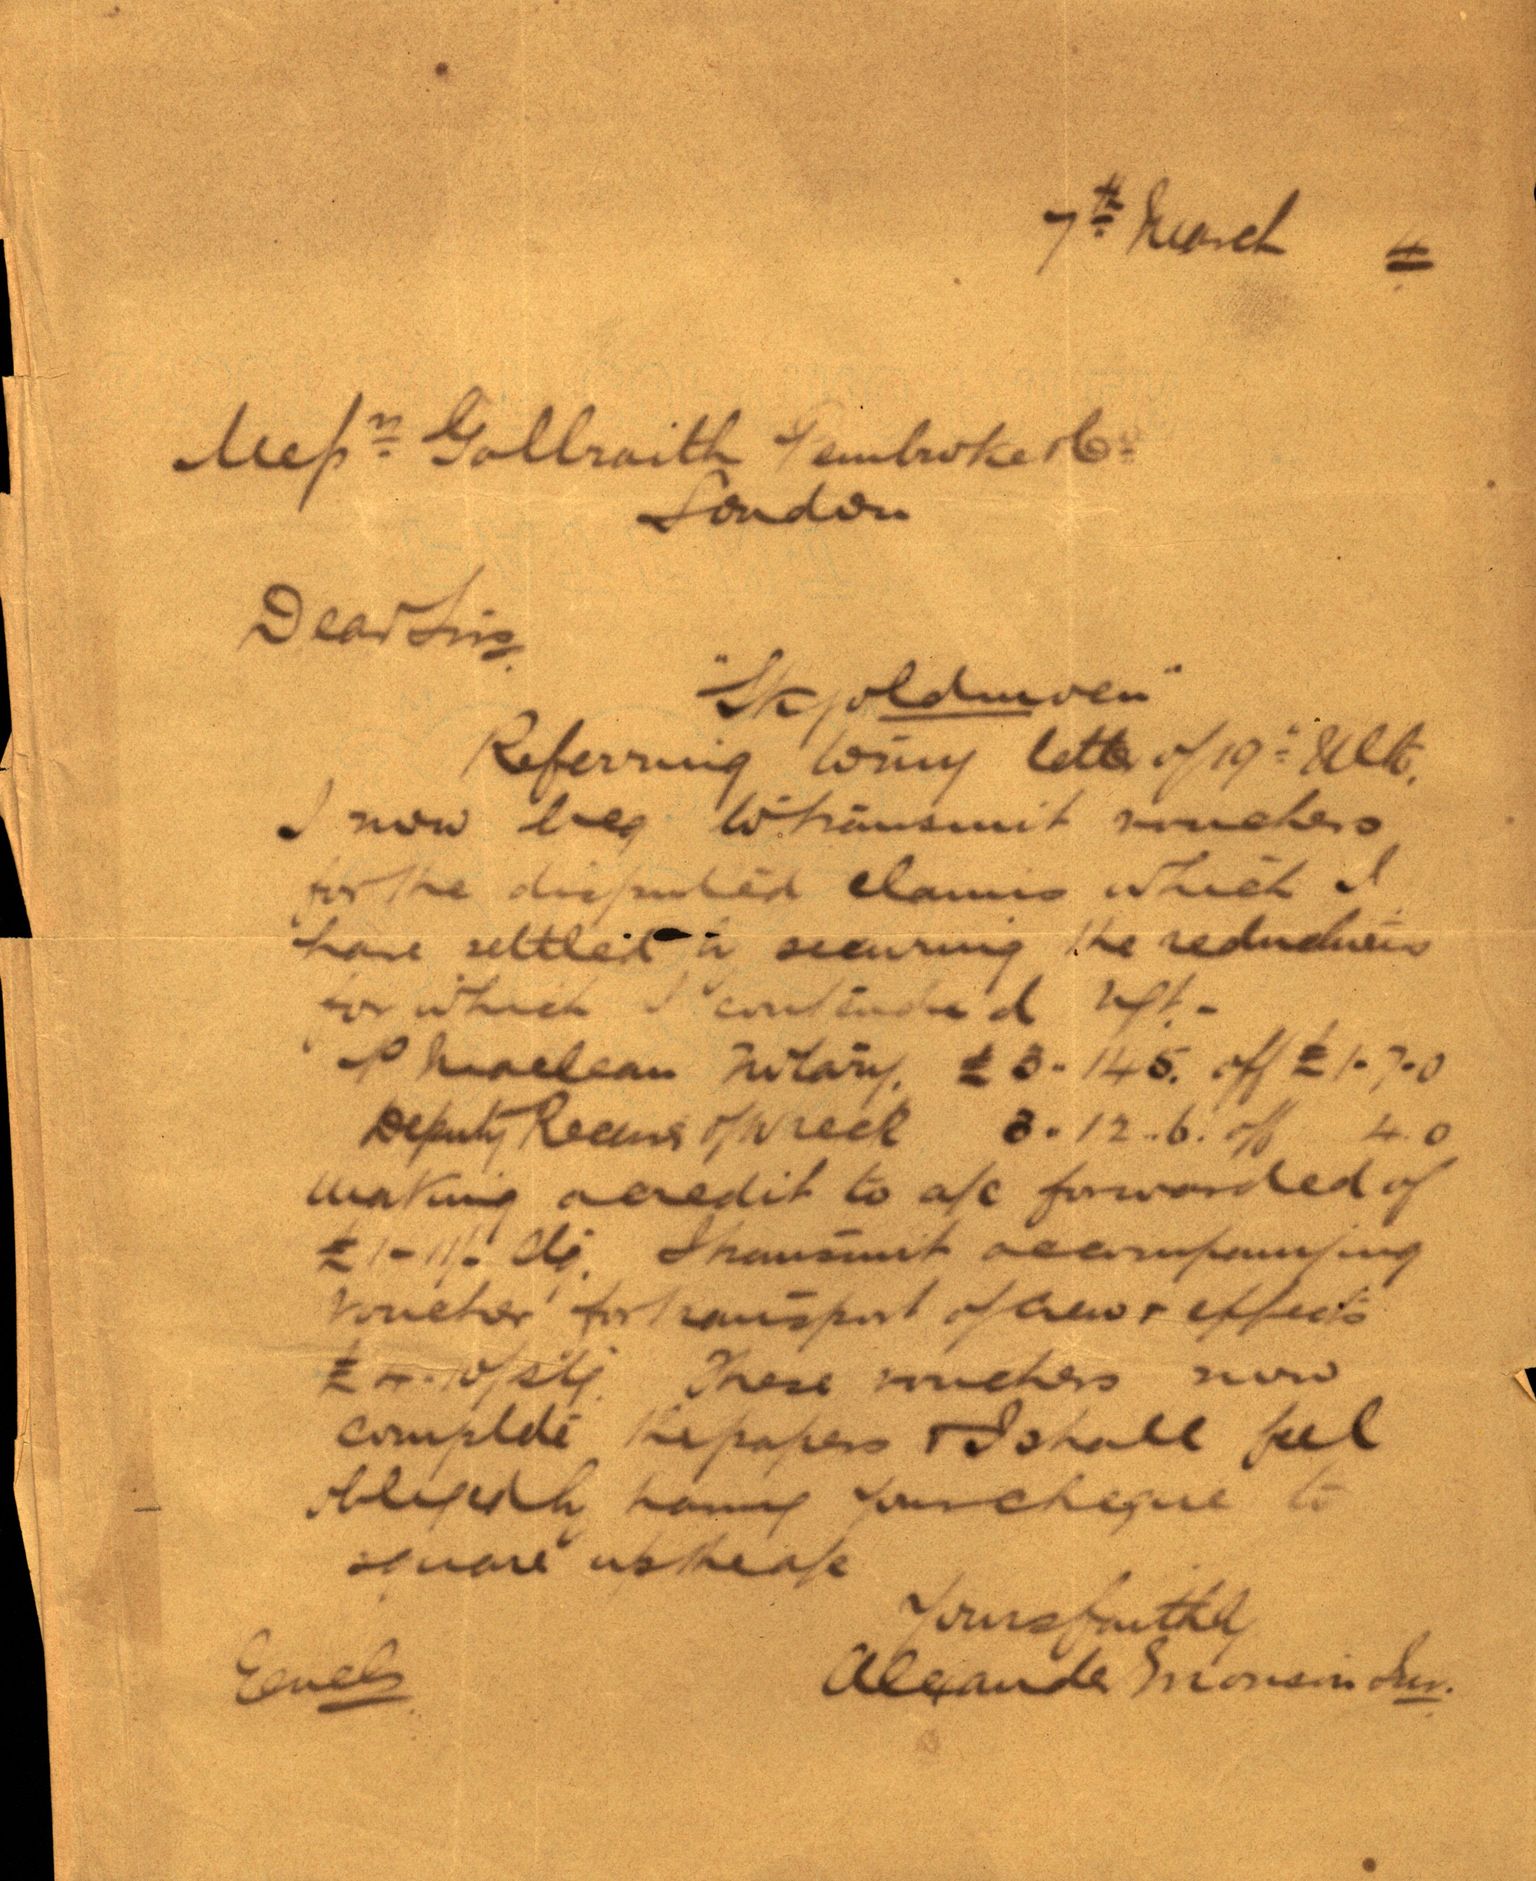 7th March 4
Messrs Galbraith Pembroke & Co
London
Dear Sirs,
"Skjoldmoen"
Referring to my letter of 19th Ulto.
I now beg to transmit vouchers
for the disputed claims which I
have settled by securing the reductions
for which I contended
P Maclean Notary. £3.14.5. off £1-7-0
Deputy Receiver of Wreck 3.12.6. off 4.0
making a credit to a/c forwarded of
£1-11/- Stg. I transmit accompanying
voucher for transport of crew & effects
Stg. These vouchers now
complete the papers & I shall feel
obliged by having your cheque to
square up the a/c
Yours faithfully
Alexander Jnr.
Encls